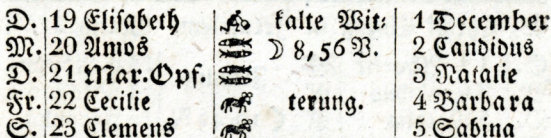 D. 19 Elisabeth kalte Wit- 1 December
M. 20 Amos ☽ 8,56 V. 2 Candidus
D. 21 Mar. Opf. 3 Natalie
Fr. 22 Cecilie terung. 4 Barbara
S. 23 Clemens 5 Sabina